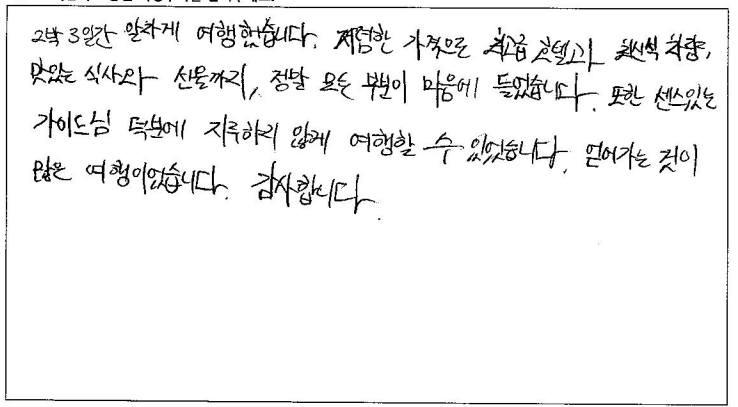 2박 3일간 알차게 여행했습니다. 저렴한 가격으로 최고급 호텔과 최신식 차량,
맛있는 식사와 선물까지, 정말 모든 부분이 마음에 들었습니다. 또한 센스있는
가이드님 덕분에 지루하지 않게 여행할 수 있었습니다. 얻어가는 것이
많은 여행이었습니다. 감사합니다.